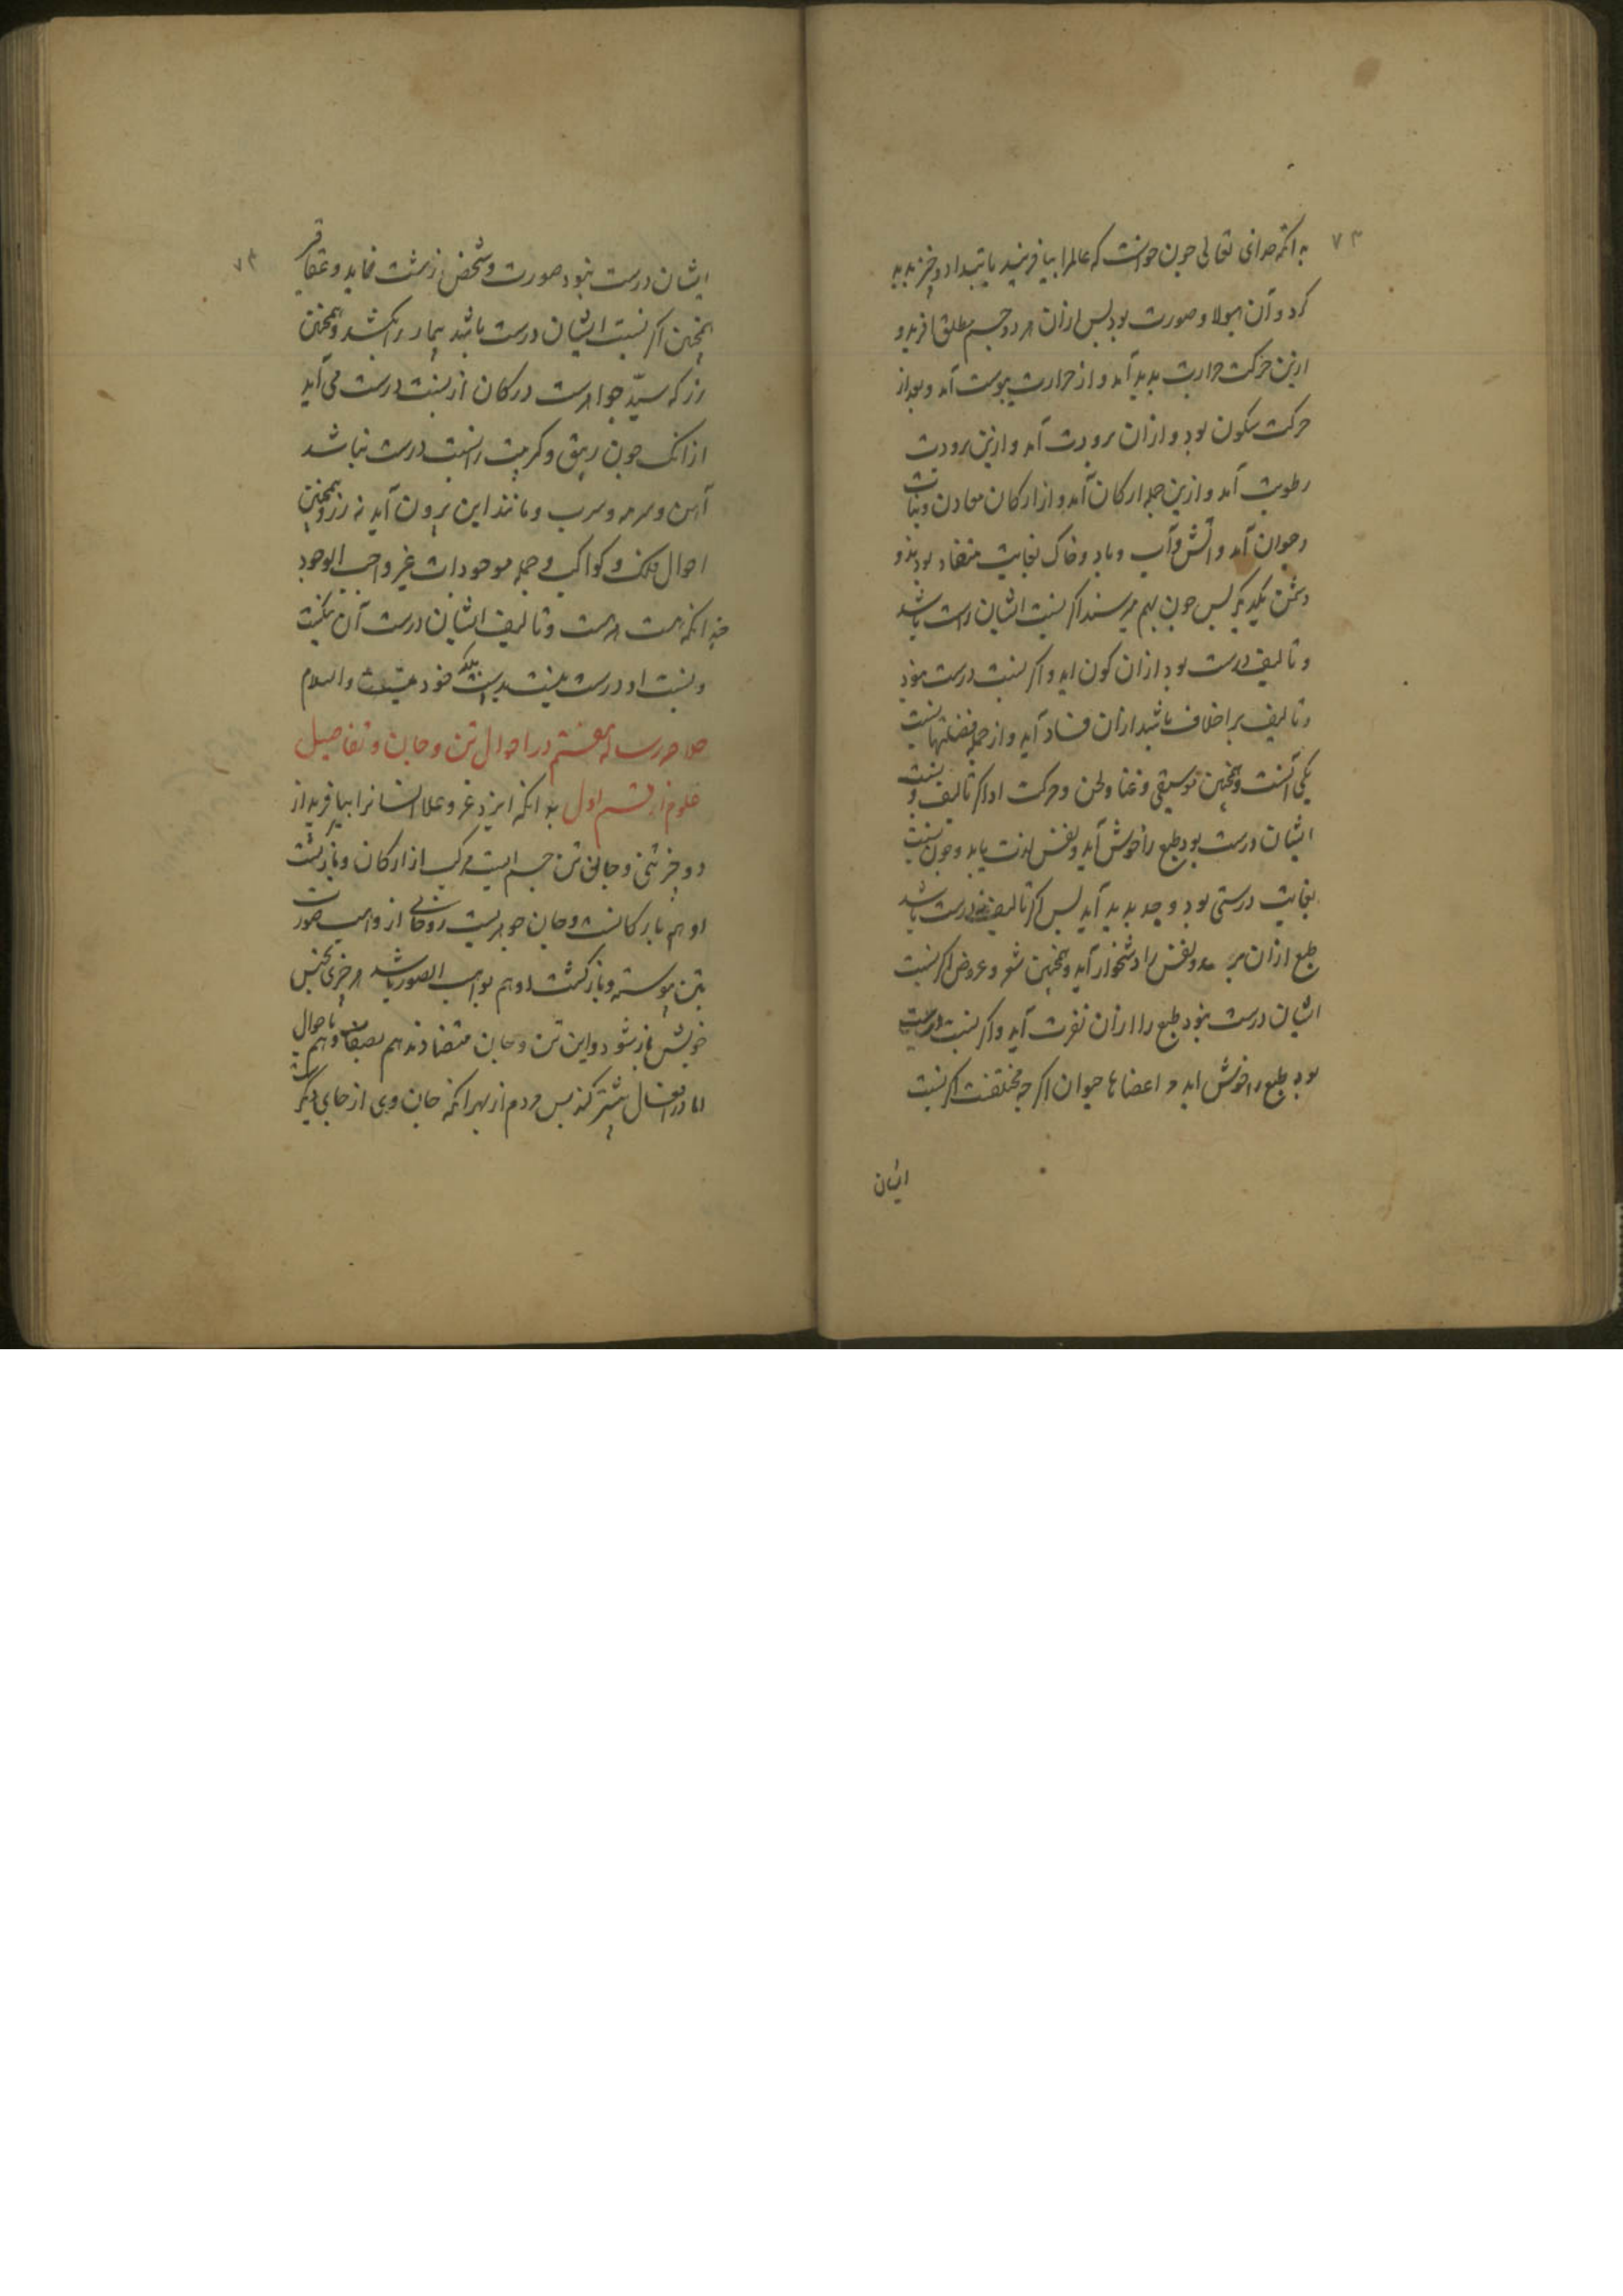 ۷۳
بدانکه خدای تعالی چون خواست که عالم را بیافریند بابتدا دو چیز پدید
کرد و آن هیولا و صورت بود پس ازان هر دو جسم مطلق افرید و
ازین حرکت حرارت پدید آمد و از حرارت یبوست آمد و بعد از
حرکت سکون بود و ازان برودت آمد و ازین برودت
رطوبت آمد و ازین جمله ارکان آمد و از ارکان معادن و نبات
وحیوان آمد و اتش و آب و باد و خاک بغایت متضاد بودند و
دشمن یکدیگر پس چون بهم میرسند اگر نسبت ایشان راست باشد
و تالیف درست بود ازان کون اید و اگر نسبت درست نبود
و تالیف بر اخلاف باشد ازان فساد آید و از جمله فضلتها نسبت
یکی آنست و همچنین موسیقی و غنا و لحن و حرکت او اگر تالیف و نسبت
ایشان درست بود طبع را خوش آید و نفس لذت یابد و چون نسبت
بغایت درستی بود وجد پدید آید پس اگر تالیف نه درست باشد
طبع ازان و نفس را دشخوار آید و همچنین شعر و عروض اگر نسبت
ایشان درست نبود طبع را ازان نفرت آید و اگر نسبت درست
بود طبع را خوش اید و اعضاها حیوان اگرچه مختلفت اگر نسبت
ایشان
۷۳
ایشان درست نبود صورت و شخص زشت نماید و عقاقیر
همچنین اگر نسبت ایشان درست باشد بیمار را بکشد و همچنین
زر که سید جواهرست در کان از نسبت درست می آید
ازانک چون زیبق و کبریت را نسبت درست نباشد
آهن و سرمه و سرب و مانند این برون آید نه زر و همچنین
احوال فلک و کواکب و جمله موجودات غیر واجب الوجود
چندانکه هست هست و تالیف ایشان درست آن
و نسبت او درست بلکه خود والسلام
خلاصه رساله هفتم در احوال تن و جان و تفاصیل
علوم از قسم اول بدانکه ایزد عز و علا انسانرا بیافرید از
دو چیز تنی و جانی تن جسم ایست مرکب از ارکان و بازگشت
او هم با رکانست و جان جوهریست روحانی از واهب صورت
بتن پیوسته و بازگشت او هم بواهب الصور باشد هر چیزی بجنس
خویش باز شود و این تن و جان متضادند هم بصفات و هم باحوال
اما در افعال مشترکند پس مردم از بهر انکه جان وی از جای دیگر